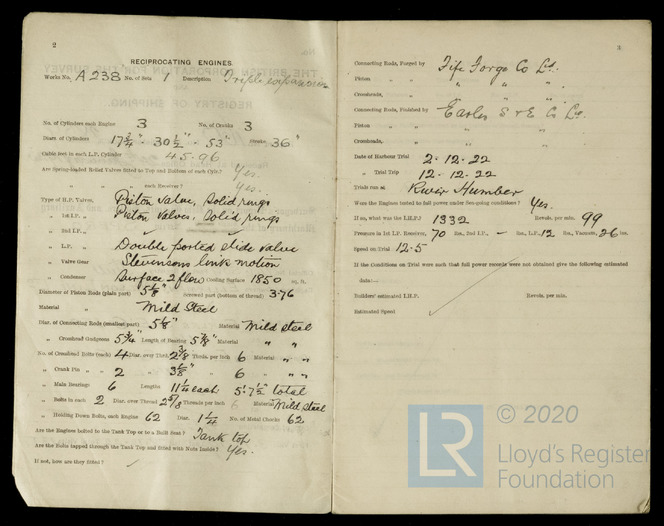 2
RECIPROCATING ENGINES.
Works No. A 238 No. of Sets 1 Description Triple expansion
No. of Cylinders each Engine 3 No. of Cranks 3
Diars. of Cylinders 17 3/4" - 30 1/2" - 53" Stroke 36"
Cubic feet in each L.P. Cylinder 45.96
Are Spring-loaded Relief Valves fitted to Top and Bottom of each Cylr.? Yes.
" " each Receiver? Yes.
Type of H.P. Valves, Piston valve, solid rings
" 1st I.P. " Piston valves, solid rings
" 2nd I.P. " ✓
" L.P. " Double ported slide valve
" Valve Gear Stevensons link motion
" Condenser Surface 2 flow Cooling Surface 1850 sq. ft.
Diameter of Piston Rods (plain part) 5 1/8" Screwed part (bottom of thread) 3.76
Material " Mild Steel
Diar. of Connecting Rods (smallest part) 5 1/8" Material Mild steel
" Crosshead Gudgeons 5 3/4" Length of Bearing 5 7/8" Material " "
No. of Crosshead Bolts (each) 4 Diar. over Thrd. 2 3/8 Thrds. per inch 6 Material " "
" Crank Pin " 2 " 3 1/8" " 6 " " "
" Main Bearings 6 Lengths 11 1/4 each 5' 7 1/2" total
" Bolts in each 2 Diar. over Thread 2 5/8 Threads per inch 6 Material Mild steel
" Holding Down Bolts, each Engine 62 Diar. 1 1/4 No. of Metal Chocks 62
Are the Engines bolted to the Tank Top or to a Built Seat? Tank top
Are the Bolts tapped through the Tank Top and fitted with Nuts Inside? Yes.
If not, how are they fitted? ✓
3
Connecting Rods, Forged by Fife Forge Co Ld.
Piston " "
Crossheads, " "
Connecting Rods, Finished by Earles S & E Co Ld.
Piston " "
Crossheads, " "
Date of Harbour Trial 2.12.22
" Trial Trip 12.12.22
Trials run at River Humber
Were the Engines tested to full power under Sea-going conditions? Yes.
If so, what was the I.H.P.? 1332 Revols. per min. 99
Pressure in 1st I.P. Receiver, 70 lbs., 2nd I.P., - lbs., L.P., 12 lbs., Vacuum, 26 ins.
Speed on Trial 12.5
If the Conditions on Trial were such that full power records were not obtained give the following estimated
data:—
Builders' estimated I.H.P. Revols. per min.
Estimated Speed
LR
© 2020
Lloyd's Register
Foundation